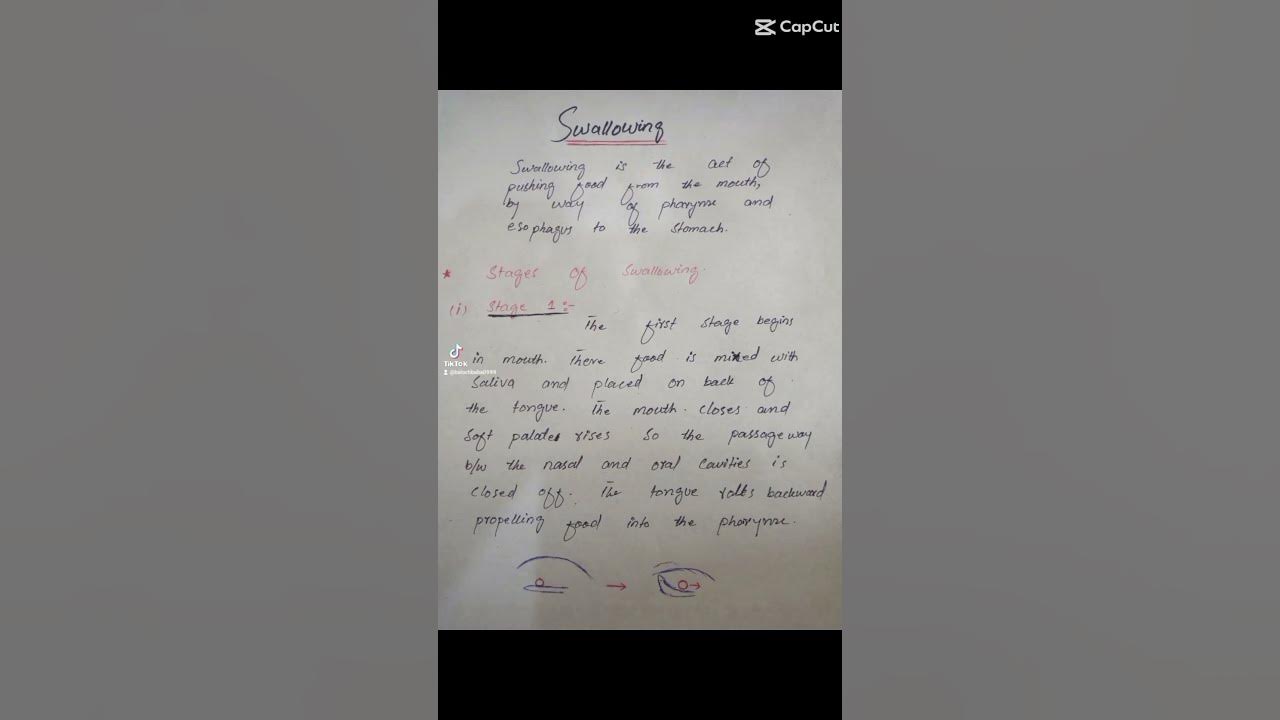 CapCut
Swallowing
Swallowing is the act of
pushing food from the mouth,
by way of pharynx and
esophagus to the stomach.
* Stages of Swallowing.
(i) Stage 1:-
The first stage begins
in mouth. There food is mixed with
TikTok
Saliva and placed on back of
the tongue. The mouth closes and
soft palate rises so the passageway
b/w the nasal and oral cavities is
closed off. The tongue rolls backward
propelling food into the pharynx.